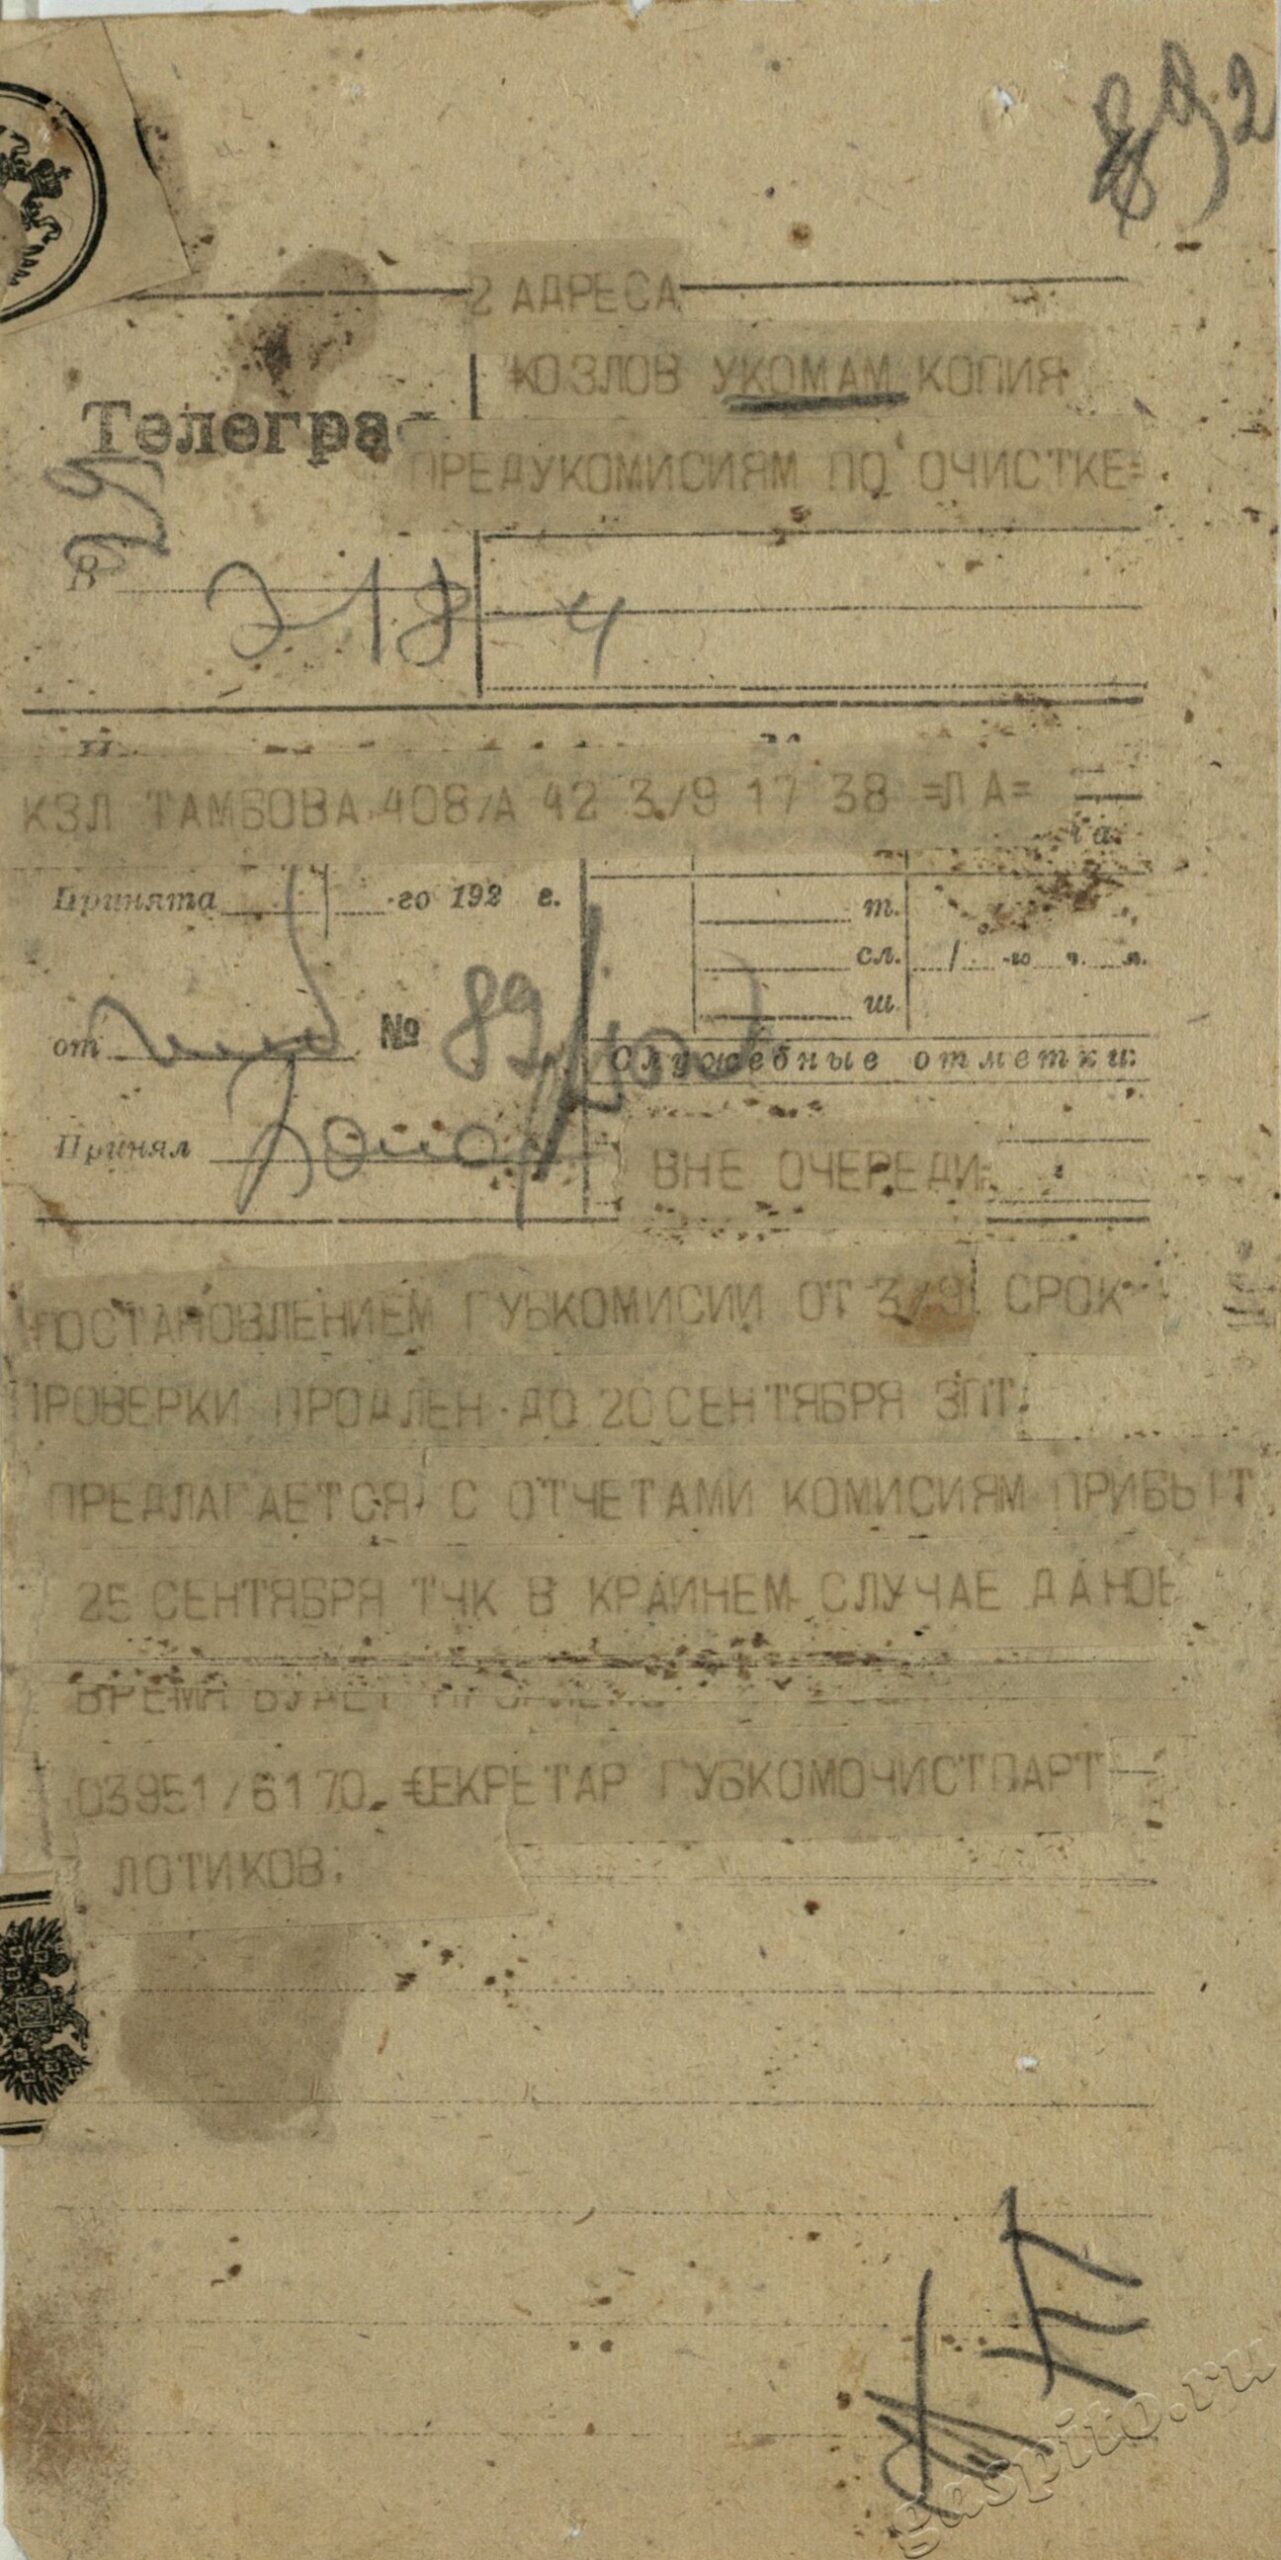 892
2 АДРЕСА
КОЗЛОВ УКОМАМ КОПИЯ
Телегра
ПРЕДУКОМИСИЯМ ПО ОЧИСТКЕ=
В
4
КЗЛ ТАМБОВА 408/А 42 3/9 17 38 =ЛА=
Принята -го 192 г.
т.
сл. -го ч. м.
ш.
от № 89
Служебные отметки:
Принял
ВНЕ ОЧЕРЕДИ
ПОСТАНОВЛЕНИЕМ ГУБКОМИСИИ ОТ 3/9 СРОК
ПРОВЕРКИ ПРОДЛЕН ДО 20 СЕНТЯБРЯ ЗПТ
ПРЕДЛАГАЕТСЯ С ОТЧЕТАМИ КОМИСИЯМ ПРИБЫТ
25 СЕНТЯБРЯ ТЧК В КРАЙНЕМ СЛУЧАЕ ДАНОЕ
ВРЕМЯ БУДЕТ ПРОДЛЕНО
03951/6170. СЕКРЕТАР ГУБКОМОЧИСТПАРТ
ЛОТИКОВ.
gaspito.ru